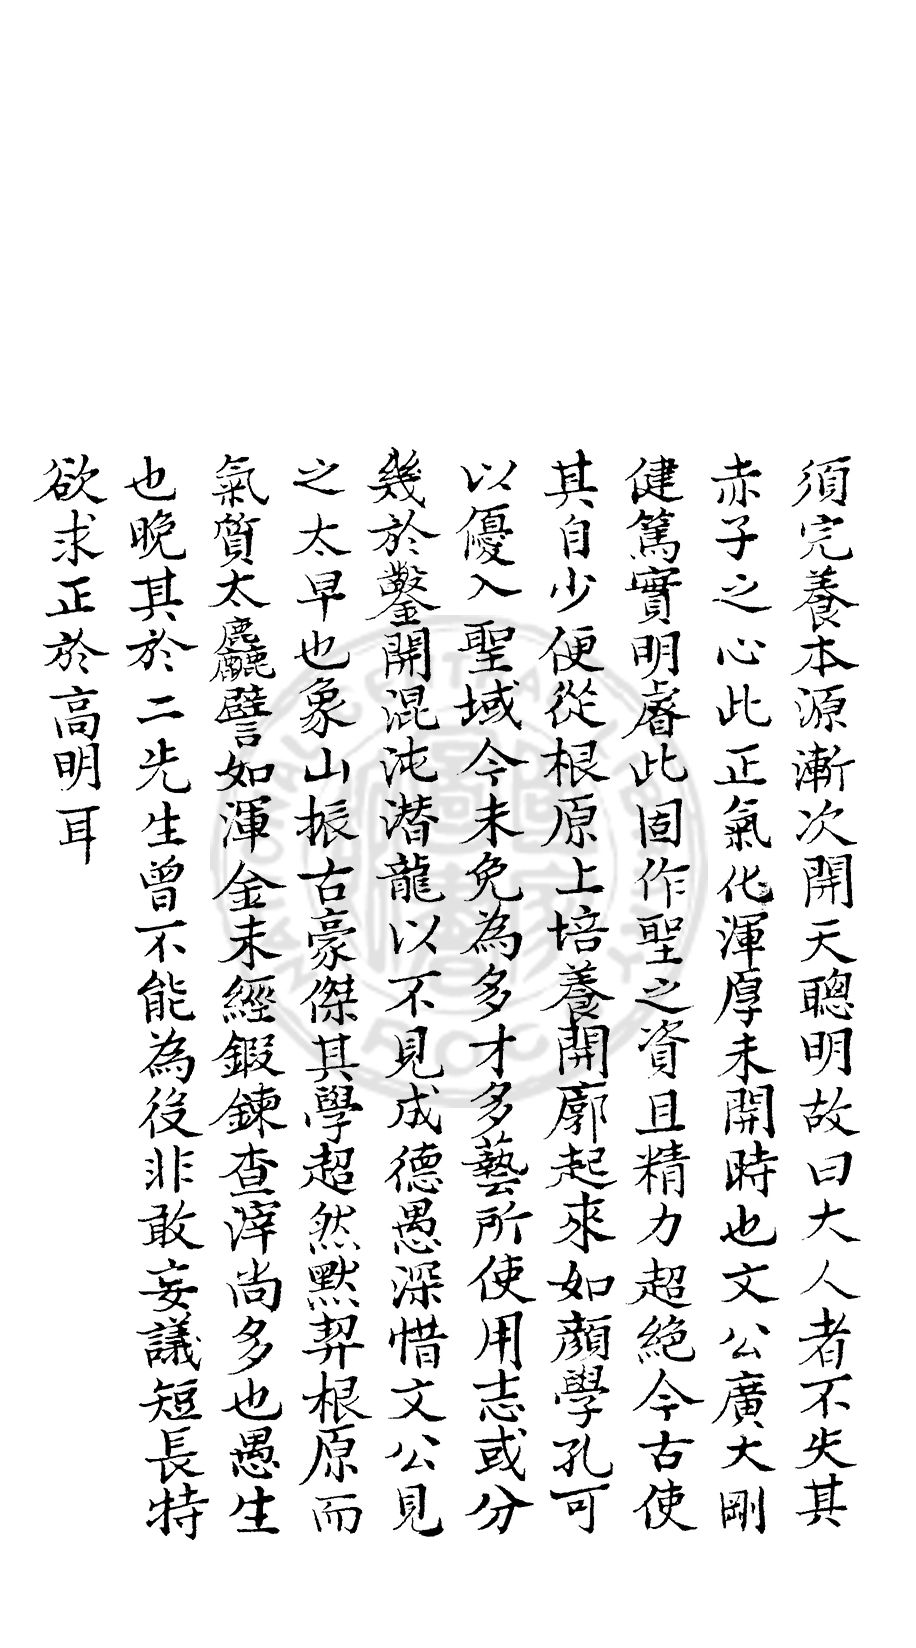 須完養本源漸次開天聰明故曰大人者不失其
赤子之心此正氣化渾厚未開時也文公廣大剛
健篤實明睿此固作聖之資且精力超絕今古使
其自少便從根原上培養開廓起來如顏學孔可
以優入聖域今未免為多才多藝所使用志或分
幾於鑿開混沌潜龍以不見成德愚深惜文公見
之太早也象山振古豪傑其學超然默契根原而
氣質太麤譬如渾金未經鍛鍊查滓尚多也愚生
也晚其於二先生曾不能為役非敢妄議短長特
欲求正於高明耳